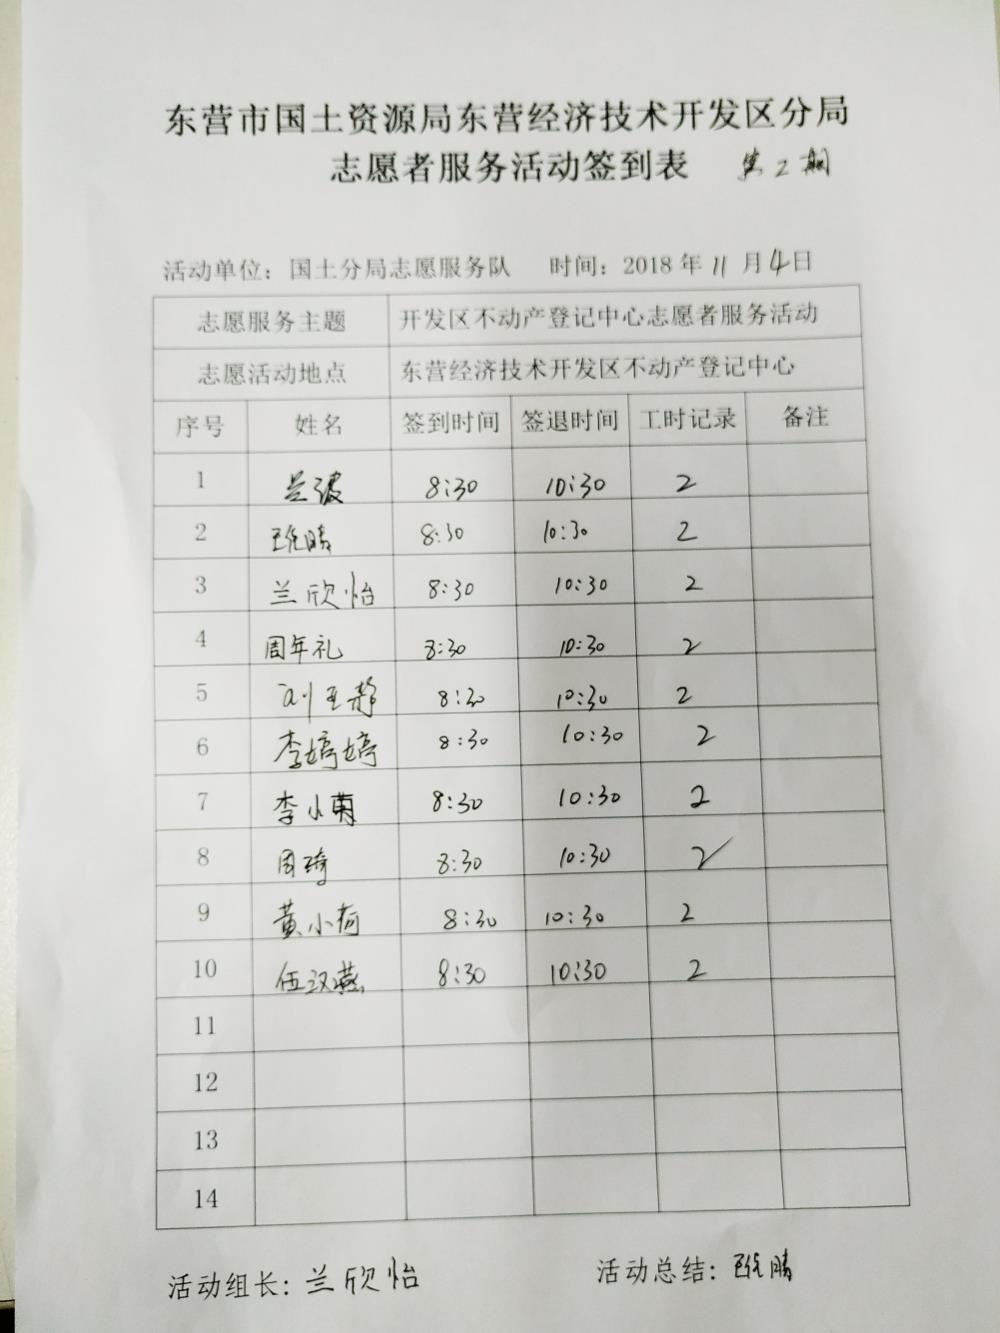 东营市国土资源局东营经济技术开发区分局
志愿者服务活动签到表 第2期
活动单位：国土分局志愿服务队 时间：2018年11月4日
志愿服务主题 开发区不动产登记中心志愿者服务活动
志愿活动地点 东营经济技术开发区不动产登记中心
序号 姓名 签到时间 签退时间 工时记录 备注
1 兰波 8:30 10:30 2
2 8:30 10:30 2
3 兰欣怡 8:30 10:30 2
4 周年礼 8:30 10:30 2
5 刘 8:30 10:30 2
6 李婷婷 8:30 10:30 2
7 李小菊 8:30 10:30 2
8 周琦 8:30 10:30 2
9 黄小荷 8:30 10:30 2
10 伍汉燕 8:30 10:30 2
11
12
13
14
活动组长：兰欣怡 活动总结：